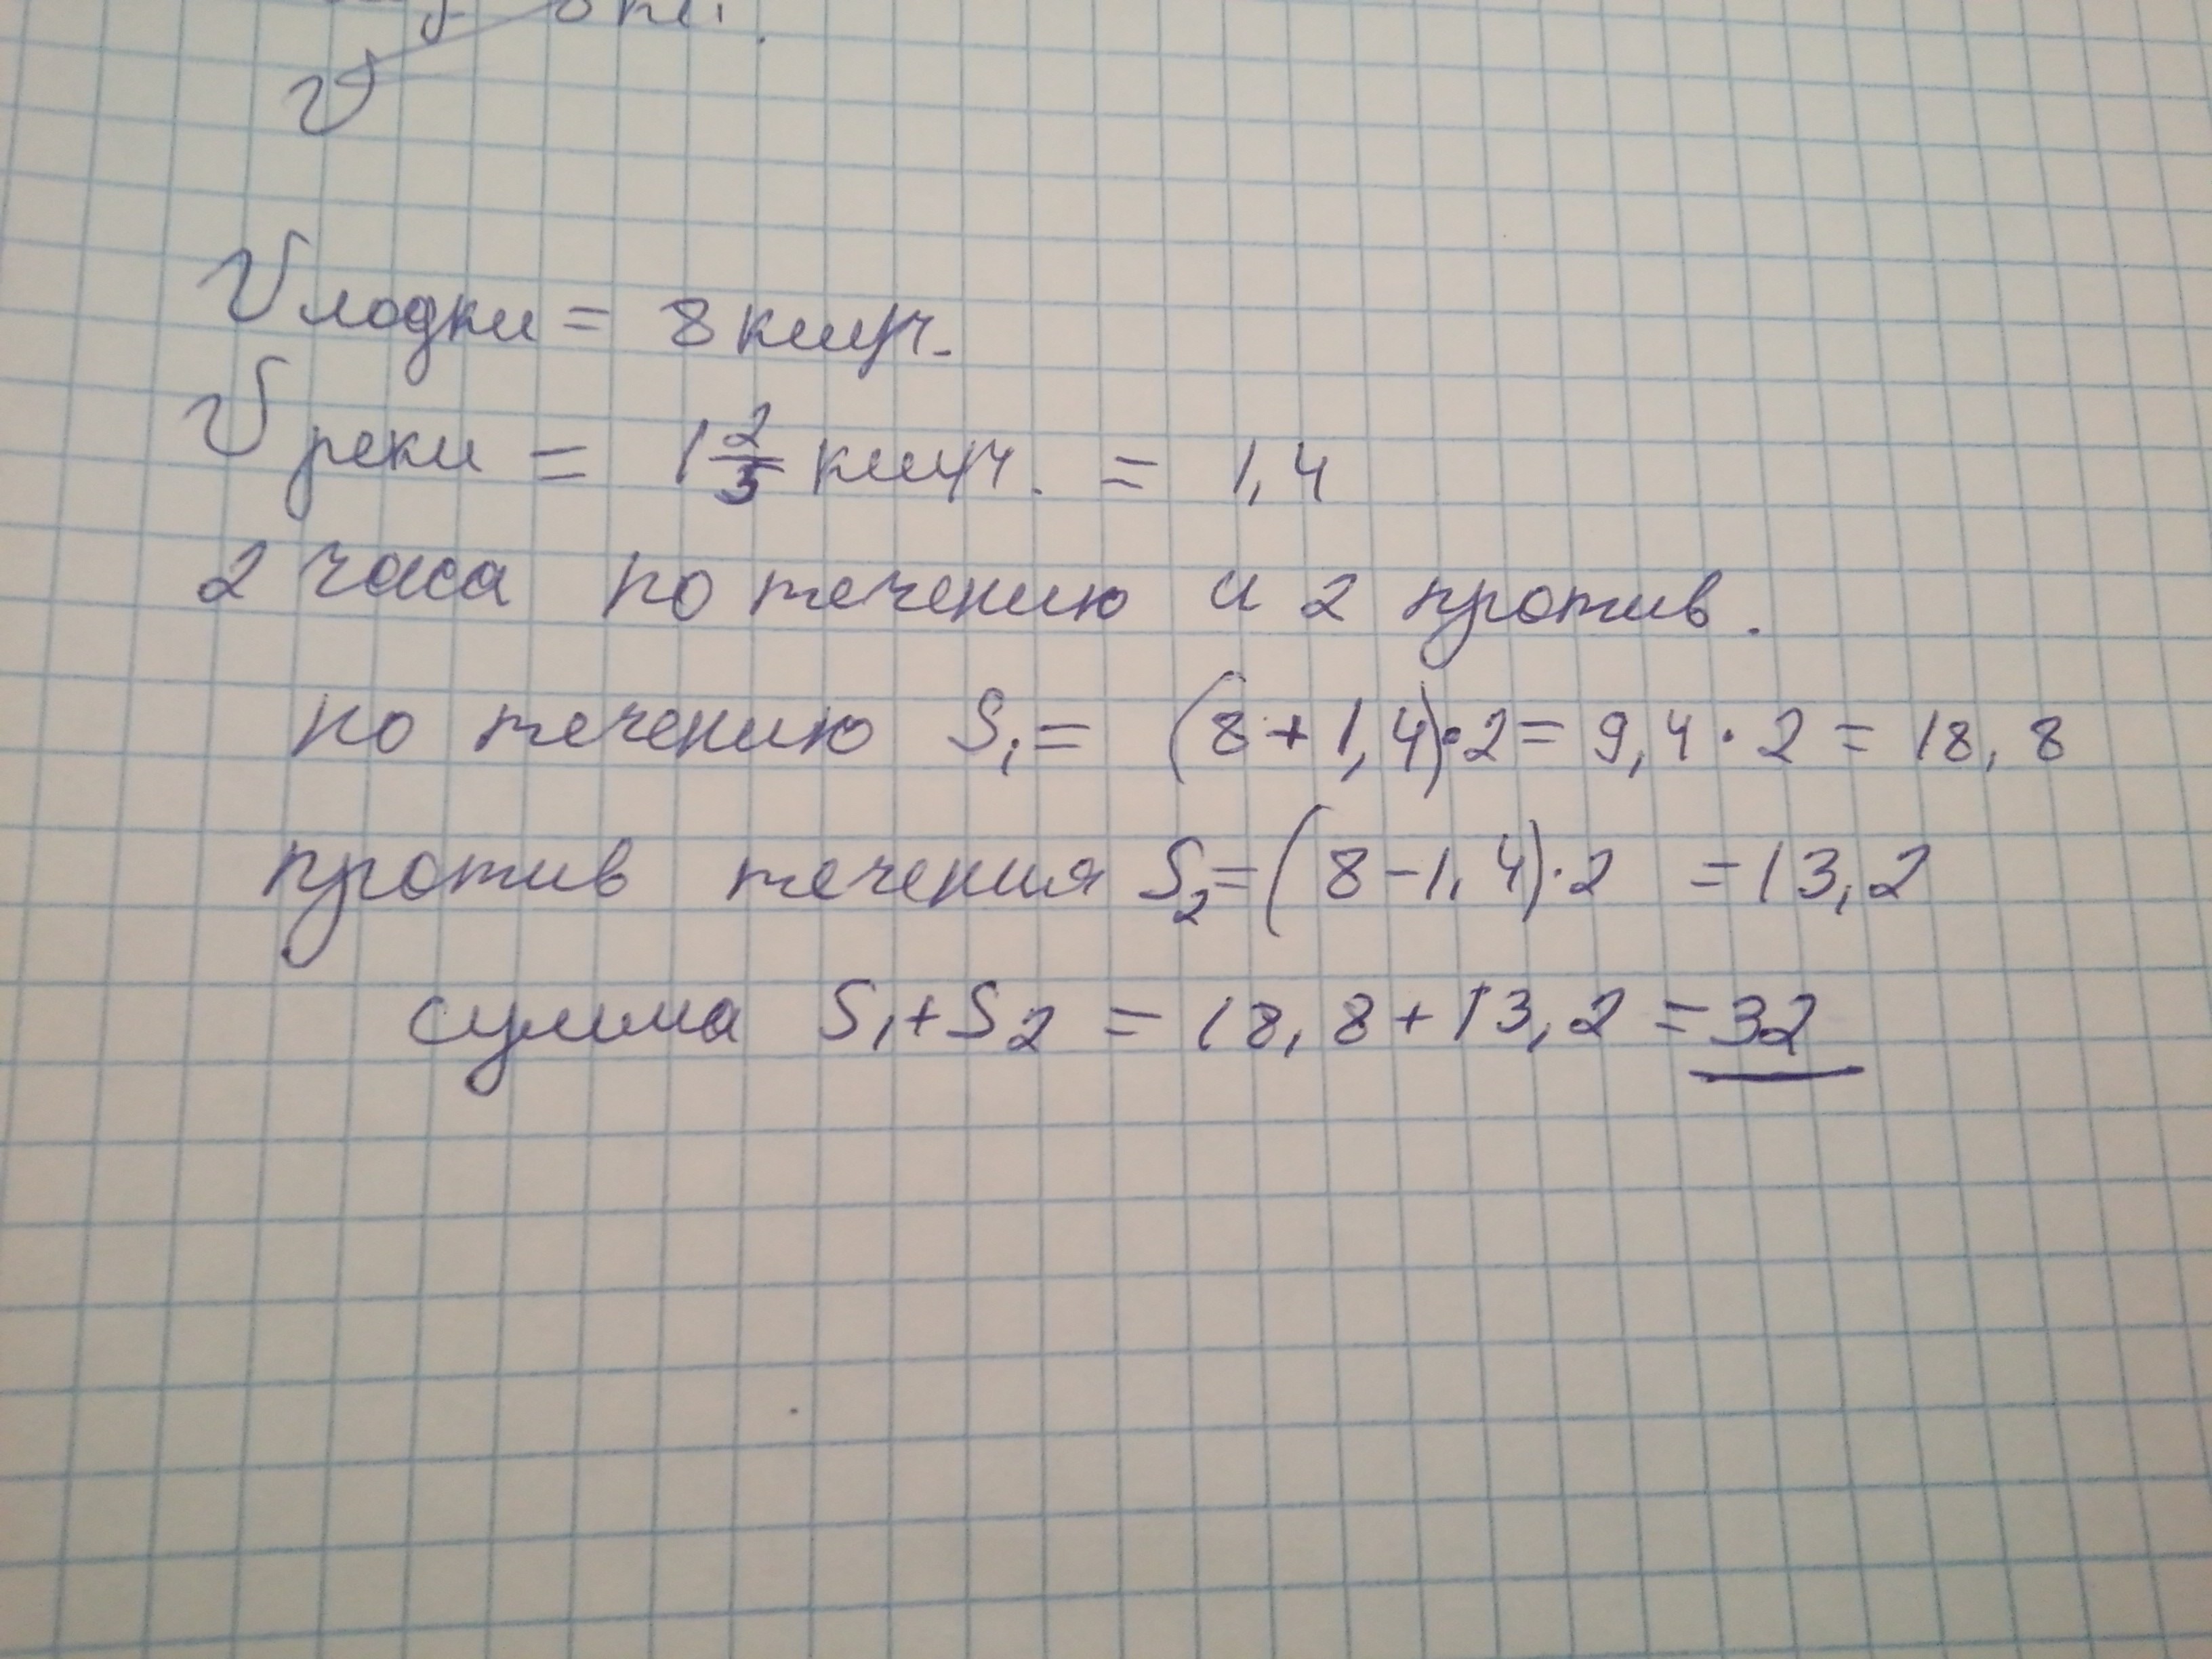 V
V лодки = 8 км/ч.
V реки = 1 2/5 км/ч. = 1,4
2 часа по течению и 2 против.
по течению S1 = (8+1,4)·2 = 9,4 · 2 = 18,8
против течения S2 = (8-1,4)·2 = 13,2
сумма S1+S2 = 18,8+13,2 = 32